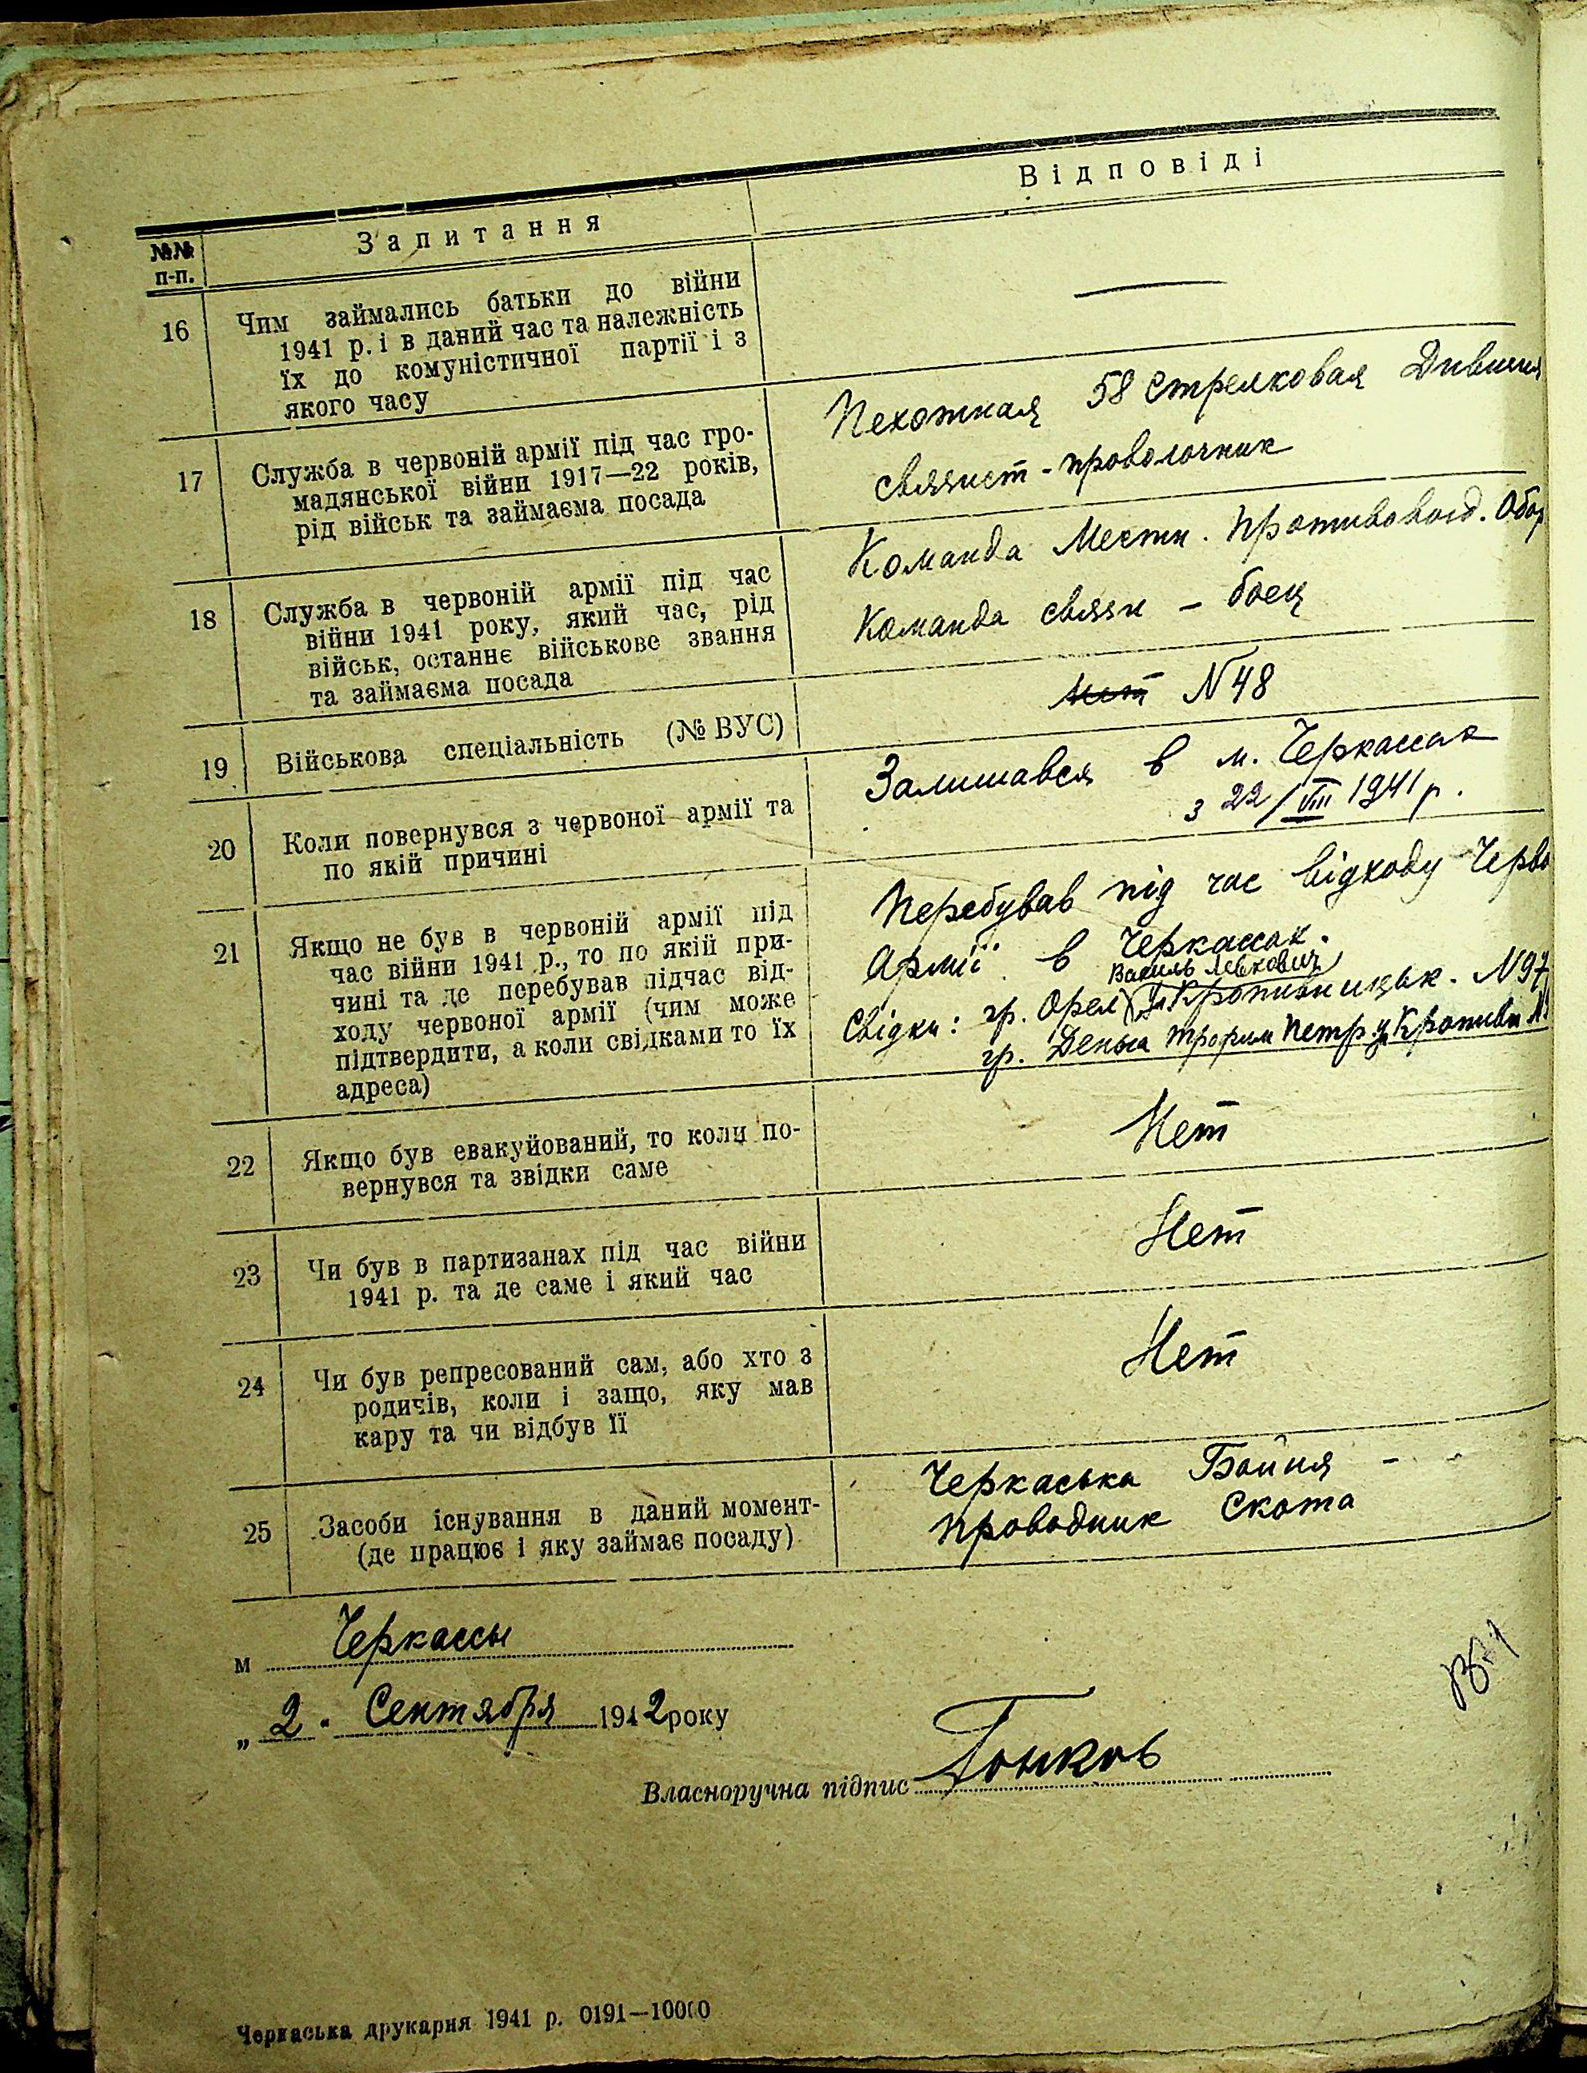 №№ п-п.
Запитання
Відповіді
16
Чим займались батьки до війни
1941 р. і в даний час та належність
їх до комуністичної партії і з
якого часу
—
17
Служба в червоній армії під час гро-
мадянської війни 1917—22 років,
рід військ та займаєма посада
Пехотная 58 стрелковая Дивизия
связист - проволочник
18
Служба в червоній армії під час
війни 1941 року, який час, рід
військ, останнє військове звання
та займаєма посада
Команда Местн. Противовозд. Обор
Команда связи - боец
19
Військова спеціальність (№ ВУС)
нет N 48
20
Коли повернувся з червоної армії та
по якій причині
Залишався в м. Черкассах
з 22/VIII 1941 р.
21
Якщо не був в червоній армії під
час війни 1941 р., то по якій при-
чині та де перебував підчас від-
ходу червоної армії (чим може
підтвердити, а коли свідками то їх
адреса)
Перебував під час відходу Черво
Армії в Черкассах.
Василь Левкович
Свідки: гр. Орел ул Кропивницьк. N 97
гр. Трофим Петр ул Кропивн
22
Якщо був евакуйований, то коли по-
вернувся та звідки саме
Нет
23
Чи був в партизанах під час війни
1941 р. та де саме і який час
Нет
24
Чи був репресований сам, або хто з
родичів, коли і защо, яку мав
кару та чи відбув її
Нет
25
Засоби існування в даний момент-
(де працює і яку займає посаду)
Черкаська Бойня -
проводник Скота
м Черкассы
„2" Сентября 1942 року
Власноручна підпис
Черкаська друкарня 1941 р. 0191—10000